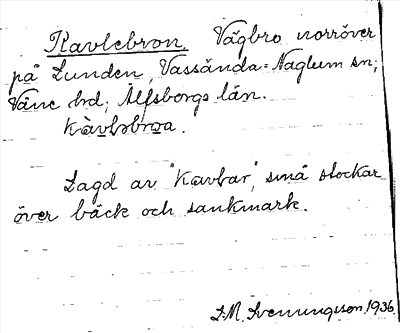 Kavlebron. Vägbro norröver
på Lunden, Vassända=Naglum sn;
Väne hrd; Älfsborgs län.
Kàvləbroa.
Lagd av "Kavlar", små stockar
över bäck och sankmark.
S.M. Svenungsson, 1936.